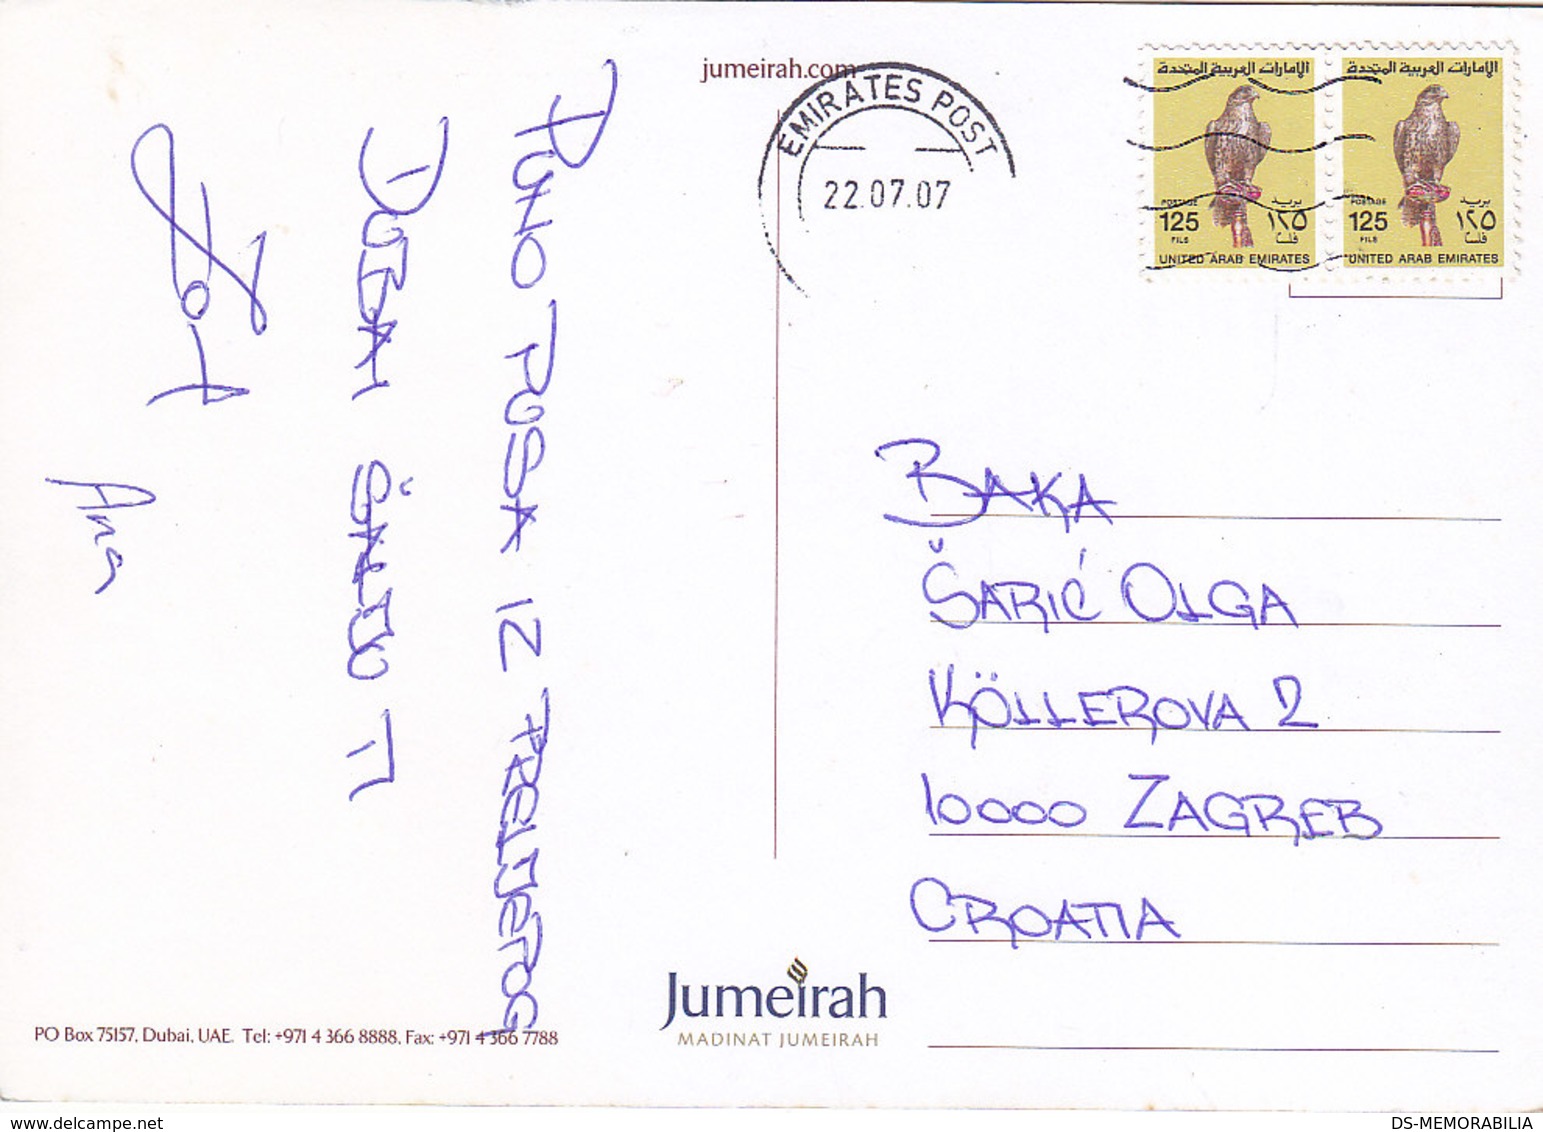 jumeirah.com
EMIRATES POST
22.07.07
الإمارات العربية المتحدة
POSTAGE بريد
125 ١٢٥
FILS فلسا
UNITED ARAB EMIRATES
الإمارات العربية المتحدة
POSTAGE بريد
125 ١٢٥
FILS فلسا
UNITED ARAB EMIRATES
PUNO PUSA IZ PRELIJEPOG
DUBAI ŠALJU TI
Ana
BAKA
ŠARIĆ OLGA
KÖLLEROVA 2
10000 ZAGREB
CROATIA
Jumeirah
MADINAT JUMEIRAH
PO Box 75157, Dubai, UAE. Tel: +971 4 366 8888, Fax: +971 4 366 7788
DS-MEMORABILIA
delcampe.net